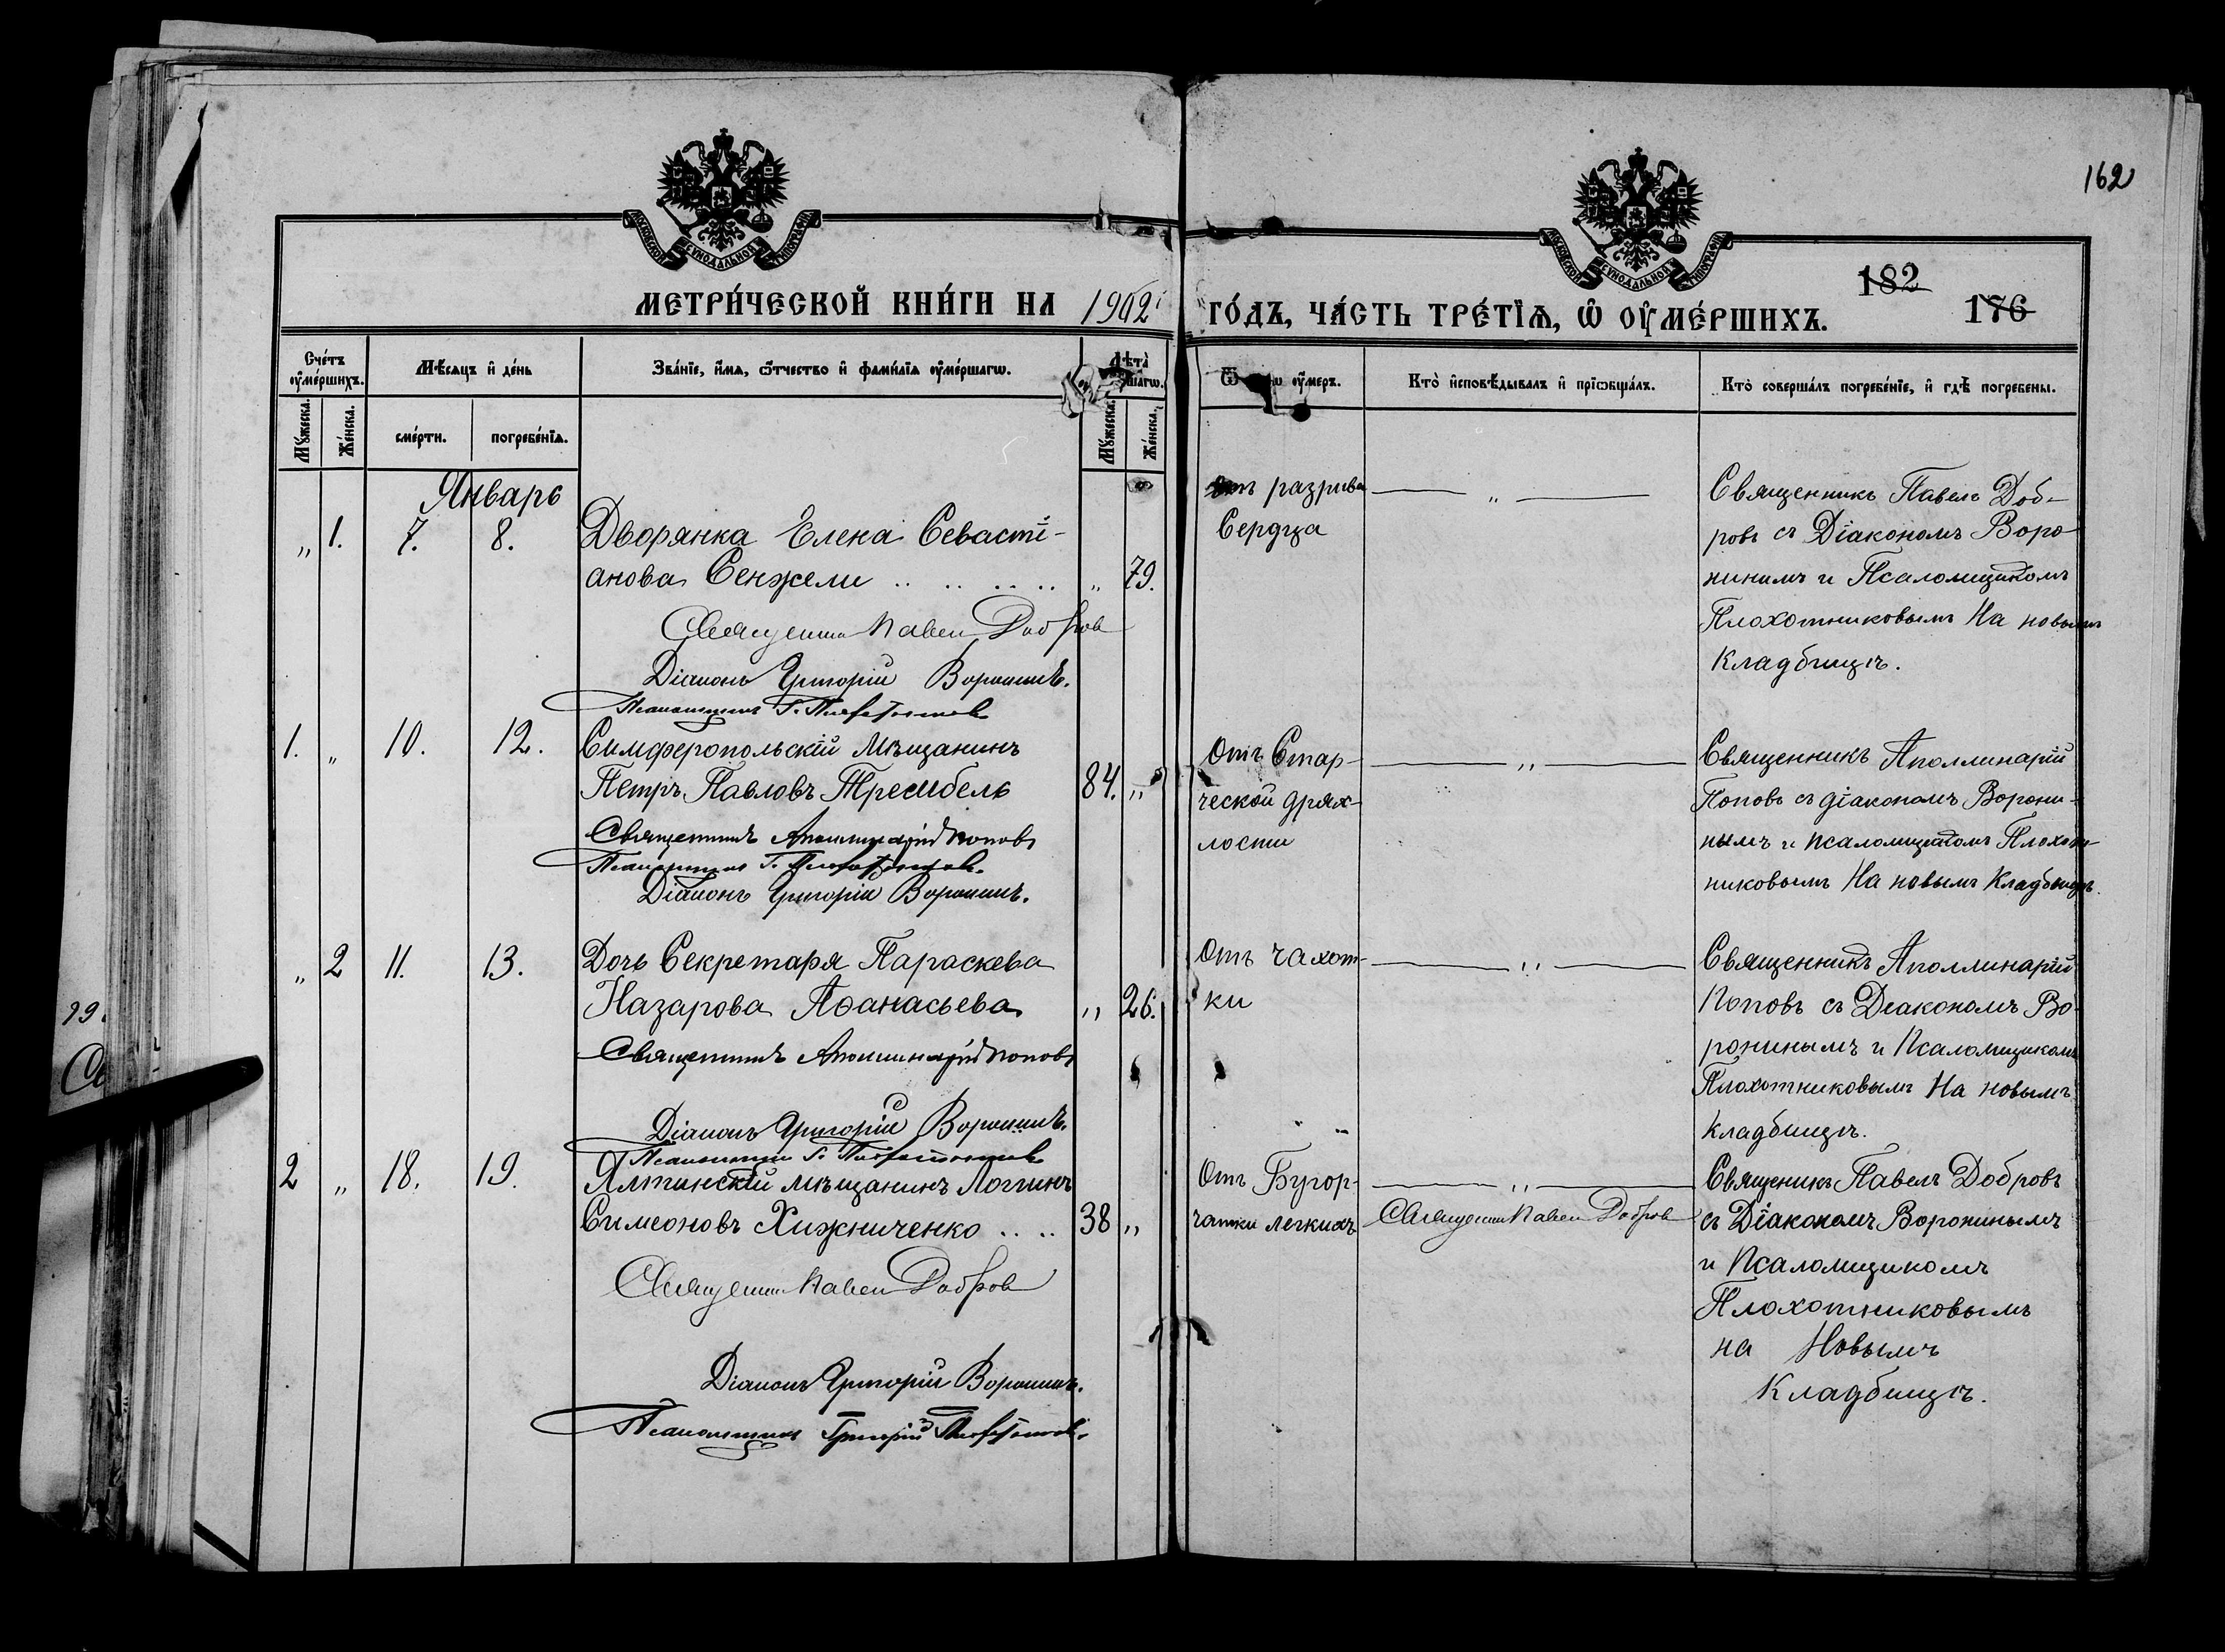 162
МОСКОВСКОЙ СѴНОДАЛЬНОЙ ТИПОГРАФІИ
МОСКОВСКОЙ СѴНОДАЛЬНОЙ ТИПОГРАФІИ
МЕТРИ́ЧЕСКОЙ КНИ́ГИ НА 1902
ГО́ДЪ, ЧА́СТЬ ТРЕ́ТЇѦ, Ѡ ОУ҆МЕ́РШИХЪ.
182
176
Сче́тъ оу҆ме́ршихъ.
Мѣ́сяцъ и҆ де́нь
Зва́нїе, и҆́мѧ, ѻ҆́тчество и҆ фами́лїѧ оу҆ме́ршагѡ.
Лѣта̀
Ѿ оу҆меръ.
Кто̀ и҆сповѣ́дывалъ и҆ прїѡбща́лъ.
Кто̀ соверша́лъ погребе́нїе, и҆ гдѣ̀ погребены.
Мꙋ́жеска.
Же́нска.
сме́рти.
погребе́нїѧ.
Мꙋ́жеска.
Же́нска.
Январь
„ 1. 7. 8. Дворянка Елена Севасті-
анова Сенжели .. .. .. .. „ 79.
Священник Павел Добров
Діаконъ Григорій Воронинъ.
Псаломщикъ Г. Плохотниковъ
отъ разрыва
Сердца
— „ —
Священникъ Павелъ Доб-
ровъ съ Діакономъ Воро-
нинымъ и Псаломщикомъ
Плохотниковымъ На новымъ
Кладбищѣ.
1. „ 10. 12. Симферопольскій Мѣщанинъ
Петръ Павловъ Трембель 84. „
Священникъ Аполлинарій Поповъ
Псаломщикъ Г. Плохотниковъ.
Діаконъ Григорій Воронинъ.
Отъ Стар-
ческой дрях-
лости
— „ —
Священникъ Аполлинарій
Поповъ съ діакономъ Ворони-
нымъ и псаломщикомъ Плохот-
никовымъ На новымъ Кладбищѣ.
„ 2 11. 13. Дочь Секретаря Параскева
Назарова Аѳанасьева „ 26.
Священникъ Аполлинарій Поповъ
Діаконъ Григорій Воронинъ.
Псаломщикъ Г. Плохотниковъ
Отъ чахот-
ки
— „ —
Священникъ Аполлинарій
Поповъ съ Деакономъ Во-
ронинымъ и Псаломщикомъ
Плохотниковымъ На новымъ
Кладбищѣ.
2 „ 18. 19. Ялтинскій мѣщанинъ Логгинъ
Симеоновъ Хижниченко .. .. 38 „
Священник Павел Добров
Діаконъ Григорій Воронинъ.
Псаломщикъ Григорій Плохотниковъ.
Отъ Бугор-
чатки легкихъ
— „ —
Священник Павел Добров
Священикъ Павелъ Добровъ
съ Діакономъ Воронинымъ
и Псаломщикомъ
Плохотниковымъ
на Новымъ
Кладбищѣ.